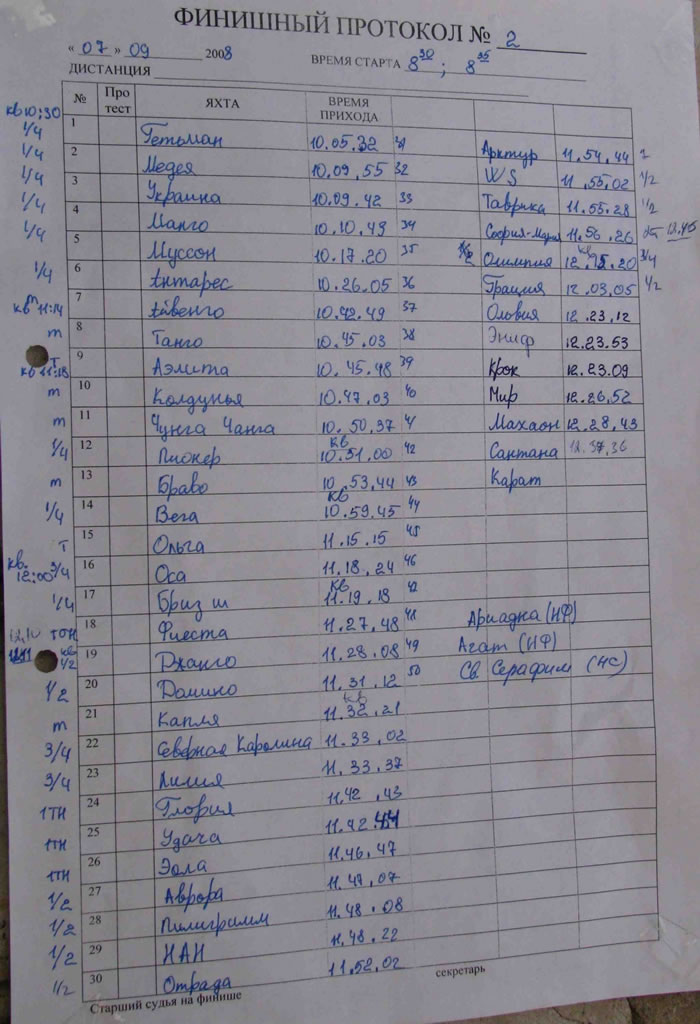 ФИНИШНЫЙ ПРОТОКОЛ № 2
« 07 » 09 2008 ВРЕМЯ СТАРТА 8 30 ; 8 35
ДИСТАНЦИЯ
№ Про тест ЯХТА ВРЕМЯ ПРИХОДА
кв 10:30
1/4 1 Гетьман 10.05.32 31 Арктур 11.54.44
1/4 2 Медея 10.09.55 32 WS 11.55.02 1/2
1/4 3 Украина 10.09.42 33 Таврика 11.55.28 1/2
1/4 4 Манго 10.10.49 34 София-Мария 11.56.26 12.45
1/4 5 Муссон 10.17.20 35 Олимпия кв 3/4
1/4 6 Антарес 10.26.05 36 Грация 12.03.05 1/2
кв 11:14 m 7 Айвенго 10.42.49 37 Ольвия 12.23.12
m 8 Танго 10.45.03 38 Эниф 12.23.53
T 9 Аэлита 10.45.48 39 Крок 12.23.09
кв 11:18
m 10 Колдунья 10.47.03 40 Мир 12.26.52
m 11 Чунга Чанга 10.50.37 41 Махаон 12.28.43
1/4 12 Пионер кв 10.51.00 42 Сантана 12.37.36
m 13 Браво 10.53.44 43 Карат
1/4 14 Вега кв 10.59.45 44
T 15 Ольга 11.15.15 45
кв. 12:00 3/4 16 Оса 11.18.24 46
1/4 17 Бриз ш кв 11.19.18
12.10 тон 18 Фиеста 11.27.48 48 Ариадна (НФ)
кв 1/2 19 Джанго 11.28.08 49 Агат (НФ)
1/2 20 Домино 11.31.12 50 Св. Серафим (НС)
m 21 Капля кв 11.32.21
3/4 22 Северная Каролина 11.33.02
3/4 23 Лилия 11.33.37
1тн 24 Глория 11.42.43
1тн 25 Удача 11.42.44
1тн 26 Эола 11.46.47
1/2 27 Аврора 11.47.07
1/2 28 Пилигримм 11.48.08
1/2 29 НАИ 11.48.22
1/2 30 Отрада 11.52.02
Старший судья на финише секретарь